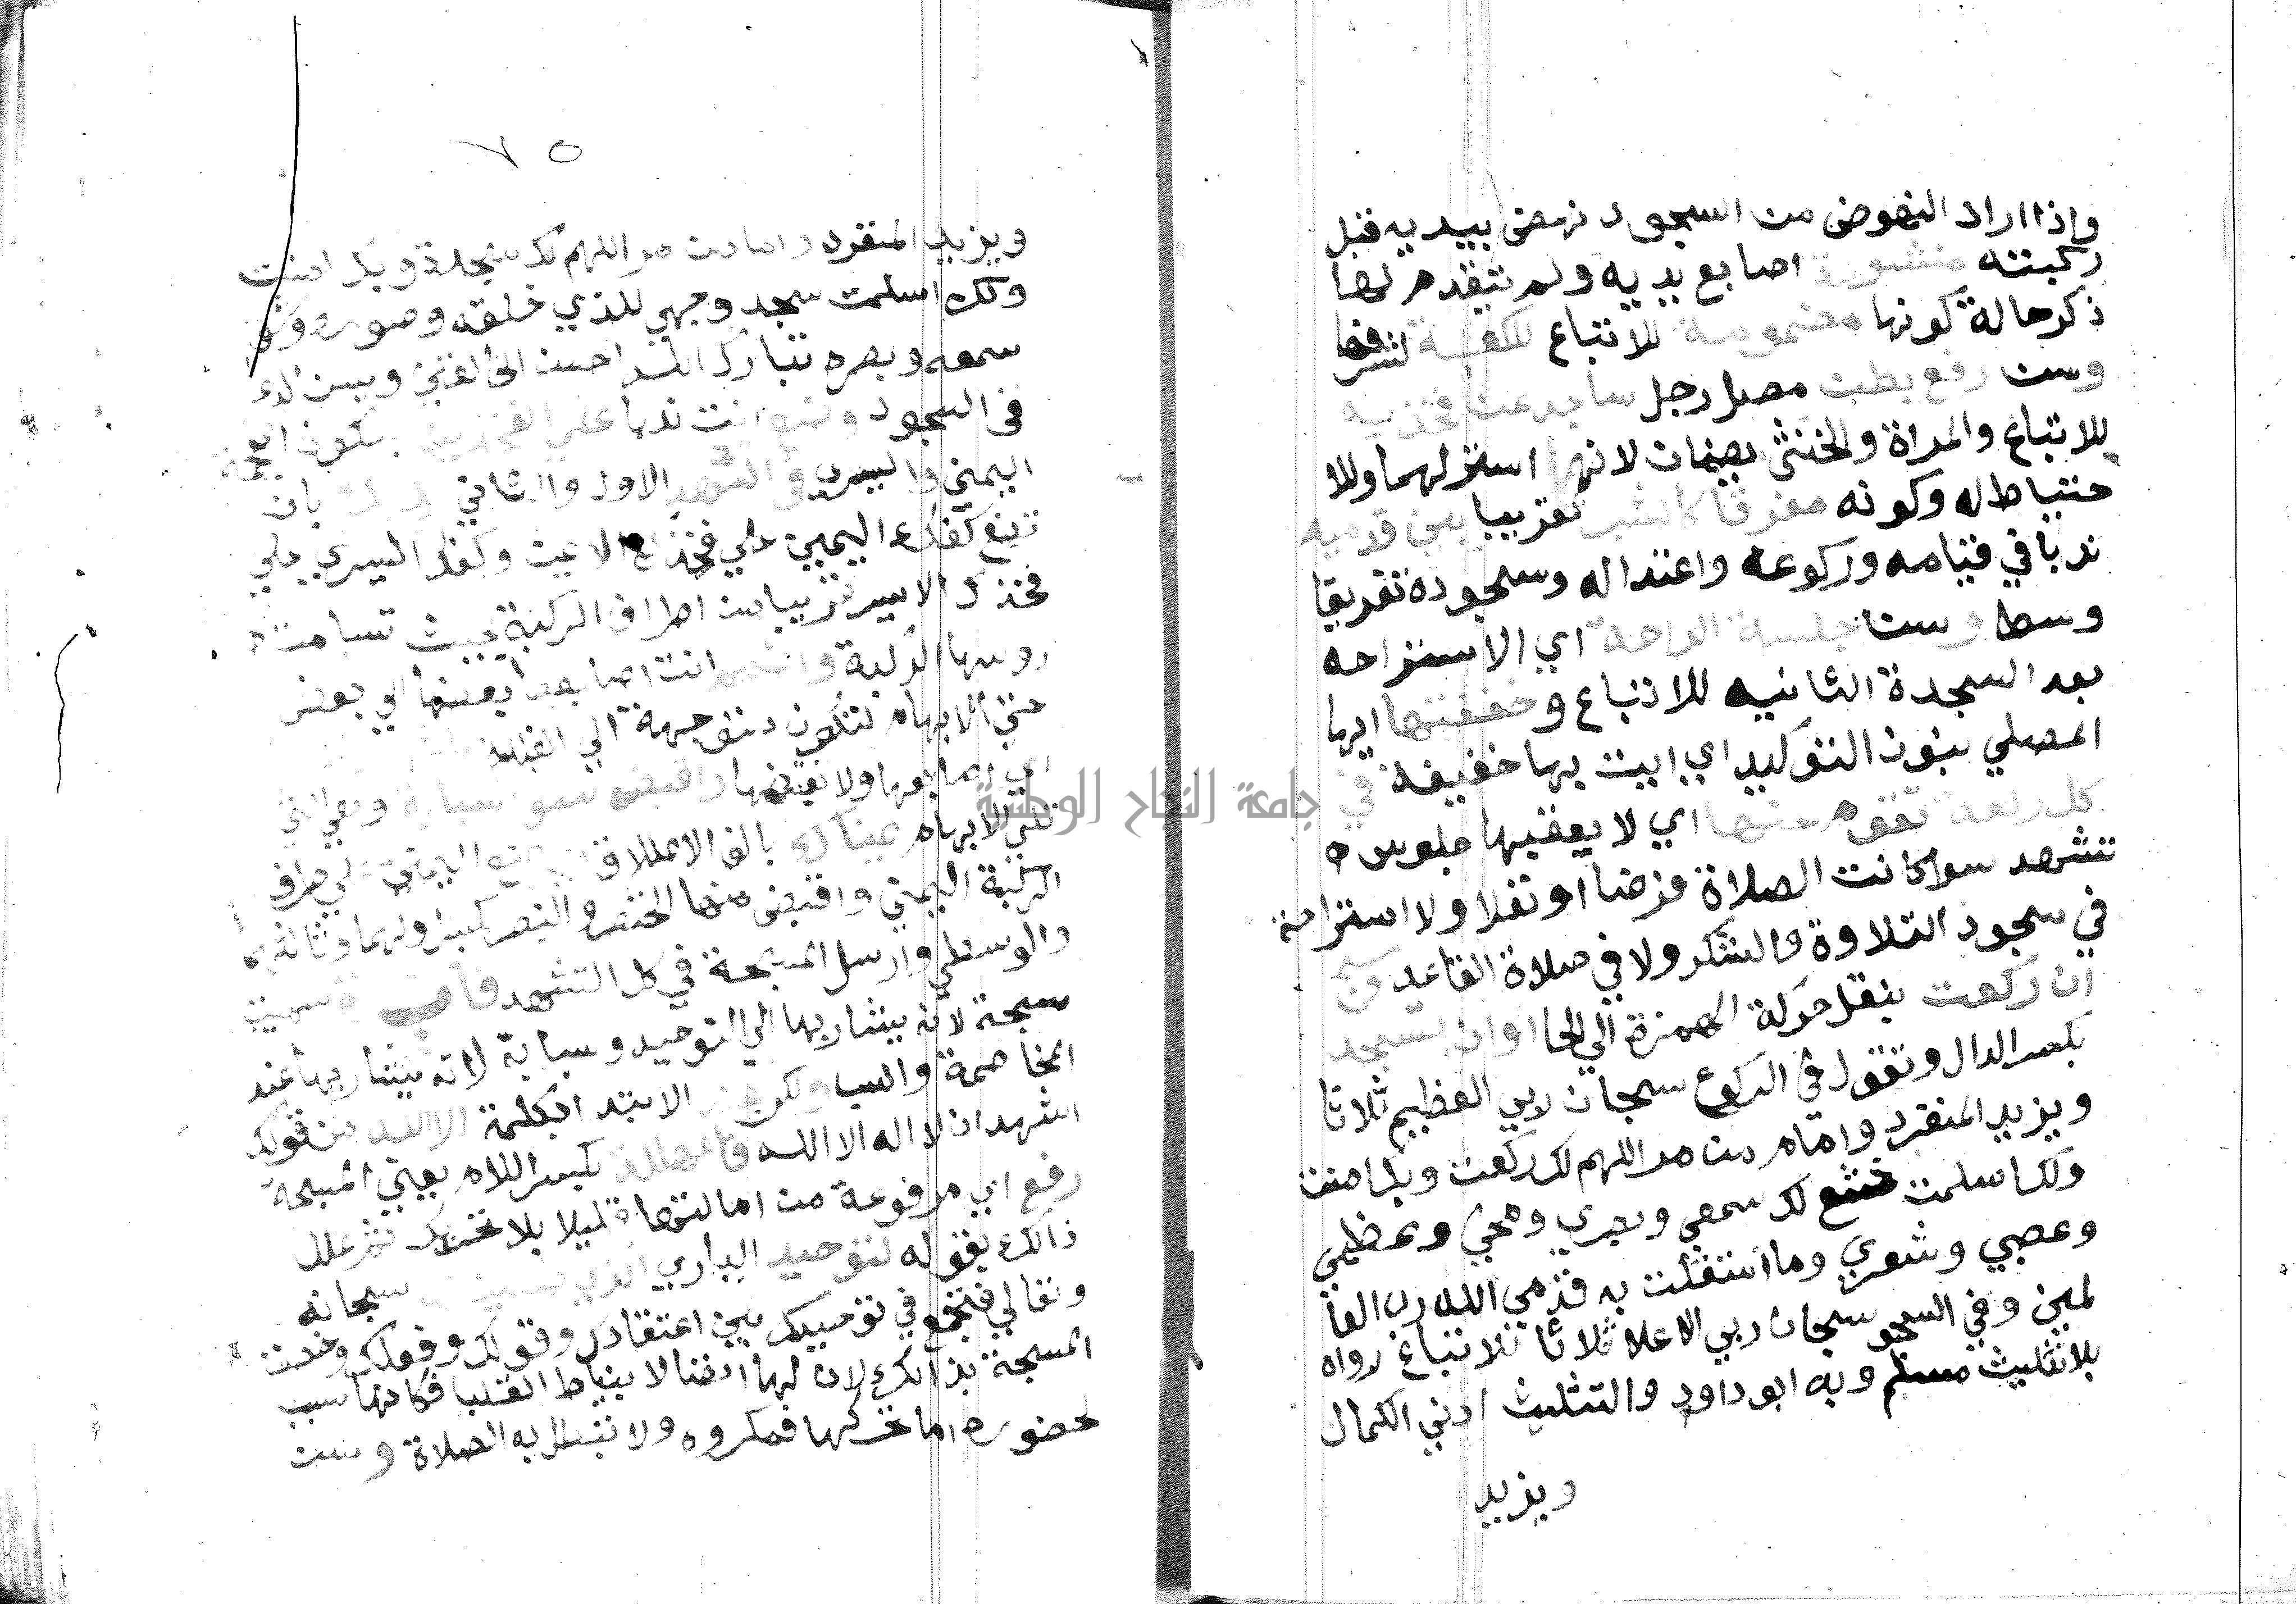 واذا اراد النهوض من السجود نهض بيديه قبل
ركبته منشورة اصابع يديه ولم تتقدم لها
ذكر حالة كونها مضمومة للاتباع للكعبة لشرفها
وسن رفع بطن مصل رجل ساجد عن فخذيه
للاتباع والمراة والخنثى يضمان لانها استر لهما وللا
حتياط له وكونه مفرقا كالشبر تقريبا بين قدميه
ندبا في قيامه وركوعه واعتداله وسجوده تفريقا
وسطا وسن جلسة الراحة اي الاستراحه
بعد السجدة الثانيه للاتباع وخففنها ايها
المصلي بنون التوكيد اي ايت بها خفيفة في
كل ركعة تقوم عنها اي لا يعقبها جلوس
تشهد سوا كانت الصلاة فرضا او نفلا ولا استراحة
في سجود التلاوة والشكر ولا في صلاة القاعد
ان ركعت بنقل حركة الهمزة الي الحا وان تسجد
بكسر الدال وتقول في الركوع سبحان ربي العظيم ثلاثا
ويزيد المنفرد وامام من مر اللهم لك ركعت وبك امنت
ولك اسلمت خشع لك سمعي وبصري ومخي وعظمي
وعصبي وشعري وما استقلت به قدمي الله رب العا
لمين وفي السجو سبحان ربي الاعلا ثلاثا للاتباع رواه
بلا تثليث مسلم وبه ابو داود والتثليث ادني الكمال
ويزيد
٧٥
ويزيد المنفرد وامام من مر اللهم لك سجدت وبك امنت
ولك اسلمت سجد وجهي للذي خلقه وصوره وشق
سمعه وبصره تبارك الله احسن الخالقين ويسن
في السجود انت ندبا علي الفخذين
اليمني واليسري في التشهد الاول والثاني بان
تضع كفك اليمين علي فخذك الايمن وكفك اليسري علي
فخذك الايسر قريبا من اطراف الركبة بحيث تسامت
روسها الركبة انت اصابعها بعضها الي بعض
حتي الابهام لتكون متوجهة الي القبلة
اي اصابعها ولا تقبضها واقبض سوا سبابة
تلي الابهام يمناك بالف الاطلاق علي طرف
الركبة اليمني واقبض منها الخنصر والبنصر
والوسطي وارسل المسبحة في كل التشهد سميت
سبحة لانه يشار بها الي التوحيد وسبابة لانه يشار بها عند
المخاصمة والسب الابتد ابكلمة الا الله من قولك
اشهد ان لا اله الا الله بكسر اللام يعني المسبحة
رفع اي مرفوعة من امالتها قليلا بلا تحريك ثم علل
ذالك بقوله لتوحيد الباري سبحانه
وتعالي فتجمع في توحيدك بين اعتقادك وقولك وفعلك وخصت
المسبحة بذالك لان لها اتصالا بنياط القلب فكانها سبب
لحضوره اما تحركها فمكروه ولا تبطل به الصلاة وسن
جامعة النجاح الوطنية